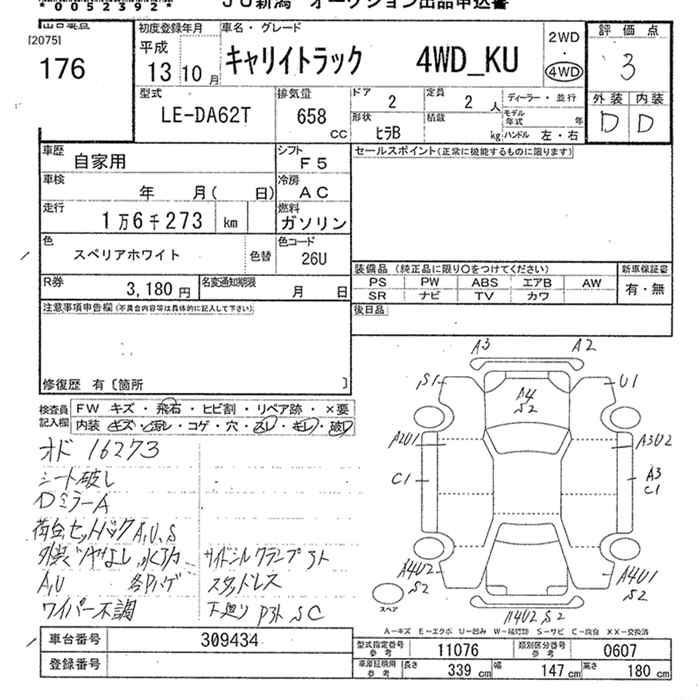 *00523592*
JU新潟 オークション出品申込書
出品番号
[2075]
176
初度登録年月
平成
13年10月
車名・グレード
キャリイトラック 4WD_KU
2WD
・
4WD
評価点
3
外装 内装
D D
型式
LE-DA62T
排気量
658
CC
ドア
2
定員
2人
ディーラー・並行
形状
ヒラB
積載
kg
モデル年式 年
ハンドル 左・右
車歴
自家用
シフト
F5
セールスポイント(正常に機能するものに限ります)
車検
年 月( 日)
冷房
AC
走行
1万6千273 km
燃料
ガソリン
色
スペリアホワイト
色替
色コード
26U
装備品 (純正品に限り○をつけてください)
PS PW ABS エアB AW
SR ナビ TV カワ
新車保証書
有・無
R券
3,180円
名変通知期限
月 日
後日品
注意事項申告欄(不具合内容等は具体的に記入して下さい)
修復歴 有〔箇所 〕
検査員記入欄
FW キズ・飛石・ヒビ割・リペア跡・×要
内装 キズ・汚レ・コゲ・穴・スレ・キレ・破レ
オド 16273
シート破し
DミラーA
荷台セットバックA,U,S
A,U 各Pハゲ
ワイパー不調
サイドシルクランプ
スタッドレス
下廻り P SC
A3 A2
S1 U1
A4
S2
A2U1 A3U2
C1
A3
C1
A4U2
S2
A4U1
S2
A4U2 S2
スペア
A-キズ E-エクボ U-凹み W-補修跡 S-サビ C-腐食 XX-交換済
車台番号
309434
登録番号
型式指定番号 参考
11076
類別区分番号 参考
0607
車庫証明用 参考
長さ 339 cm 幅 147 cm 高さ 180 cm